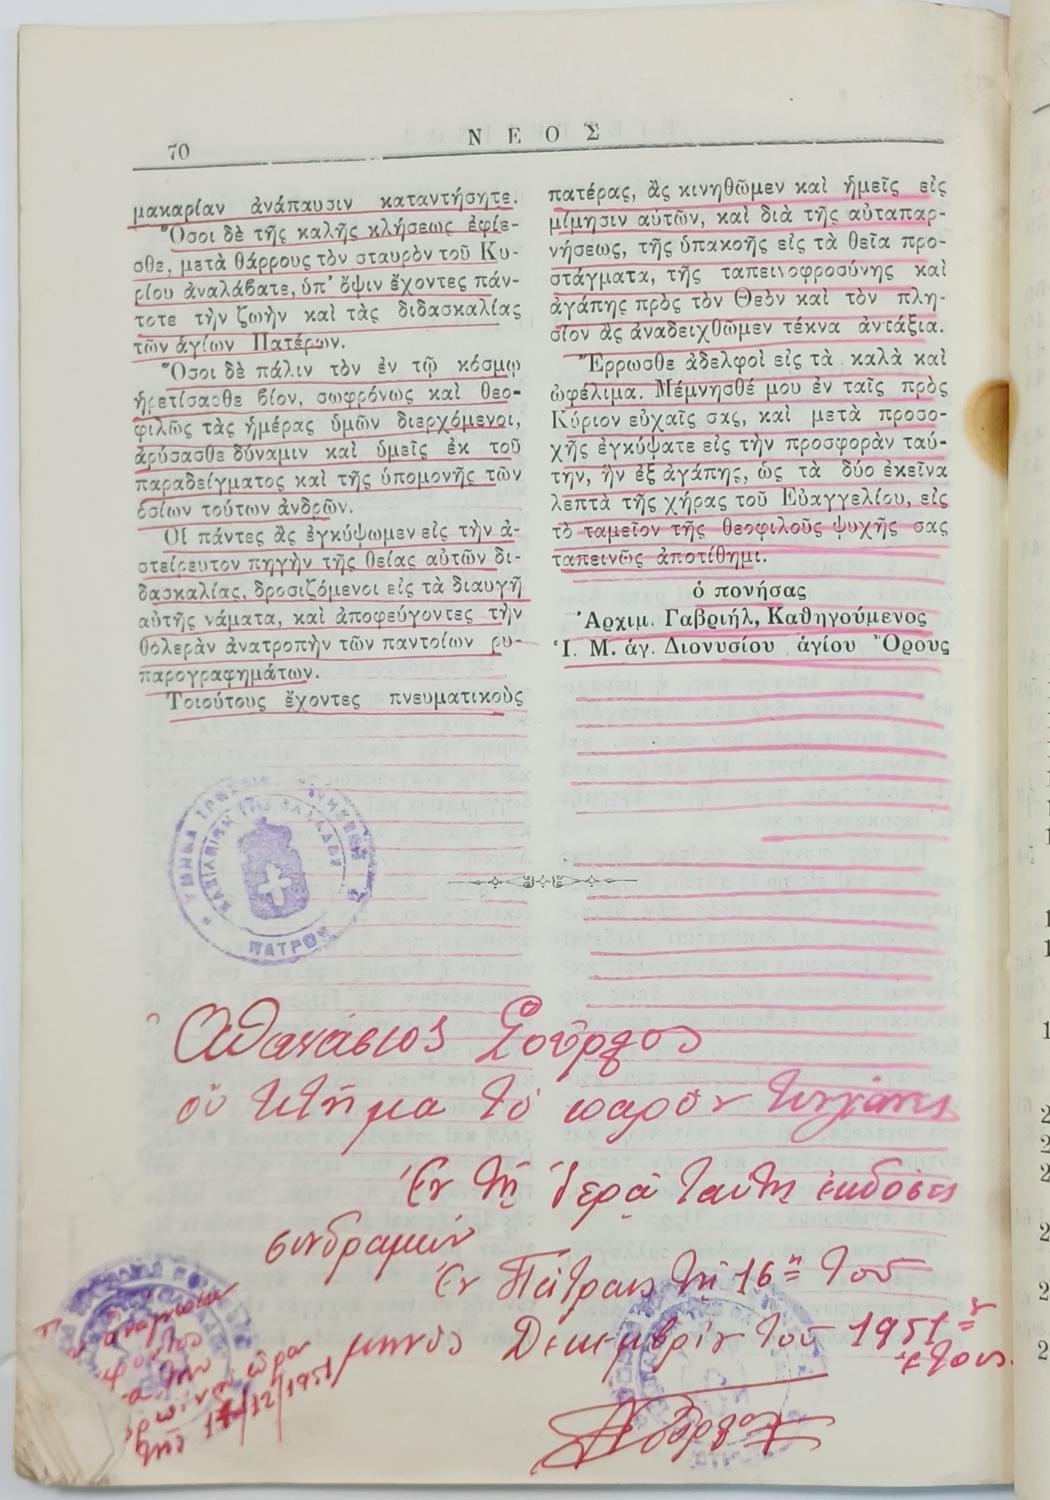 70
ΝΕΟΣ
μακαρίαν ἀνάπαυσιν καταντήσητε.
Ὅσοι δὲ τῆς καλῆς κλήσεως ἐφίε-
σθε, μετὰ θάρρους τὸν σταυρὸν τοῦ Κυ-
ρίου ἀναλάβατε, ὑπ' ὄψιν ἔχοντες πάν-
τοτε τὴν ζωὴν καὶ τὰς διδασκαλίας
τῶν ἁγίων Πατέρων.
Ὅσοι δὲ πάλιν τὸν ἐν τῷ κόσμῳ
ᾑρετίσασθε βίον, σωφρόνως καὶ θεο-
φιλῶς τὰς ἡμέρας ὑμῶν διερχόμενοι,
ἀρύσασθε δύναμιν καὶ ὑμεῖς ἐκ τοῦ
παραδείγματος καὶ τῆς ὑπομονῆς τῶν
ὁσίων τούτων ἀνδρῶν.
Οἱ πάντες ἂς ἐγκύψωμεν εἰς τὴν ἀ-
στείρευτον πηγὴν τῆς θείας αὐτῶν δι-
δασκαλίας, δροσιζόμενοι εἰς τὰ διαυγῆ
αὐτῆς νάματα, καὶ ἀποφεύγοντες τὴν
θολερὰν ἀνατροπὴν τῶν παντοίων ρυ-
παρογραφημάτων.
Τοιούτους ἔχοντες πνευματικοὺς
πατέρας, ἂς κινηθῶμεν καὶ ἡμεῖς εἰς
μίμησιν αὐτῶν, καὶ διὰ τῆς αὐταπαρ-
νήσεως, τῆς ὑπακοῆς εἰς τὰ θεῖα προ-
στάγματα, τῆς ταπεινοφροσύνης καὶ
ἀγάπης πρὸς τὸν Θεὸν καὶ τὸν πλη-
σίον ἂς ἀναδειχθῶμεν τέκνα ἀντάξια.
Ἔρρωσθε ἀδελφοὶ εἰς τὰ καλὰ καὶ
ὠφέλιμα. Μέμνησθέ μου ἐν ταῖς πρὸς
Κύριον εὐχαῖς σας, καὶ μετὰ προσο-
χῆς ἐγκύψατε εἰς τὴν προσφορὰν ταύ-
την, ἣν ἐξ ἀγάπης, ὡς τὰ δύο ἐκεῖνα
λεπτὰ τῆς χήρας τοῦ Εὐαγγελίου, εἰς
τὸ ταμεῖον τῆς θεοφιλοῦς ψυχῆς σας
ταπεινῶς ἀποτίθημι.
ὁ πονήσας
Ἀρχιμ. Γαβριήλ, Καθηγούμενος
Ἱ. Μ. ἁγ. Διονυσίου ἁγίου Ὄρους
ΒΑΣΙΛΕΙΟΝ ΤΗΣ ΕΛΛΑΔΟΣ
ΠΑΤΡΩΝ
Ἀθανάσιος Γούργος
οὗ κτῆμα τὸ παρὸν τυγχάνει
Ἐν τῇ ἱερᾷ ταύτῃ ἐκδόσει
συνδραμών
Ἐν Πάτραις τῇ 16ῃ τοῦ
μηνὸς Δεκεμβρίου τοῦ 1951
ἔτους
17/12/1951